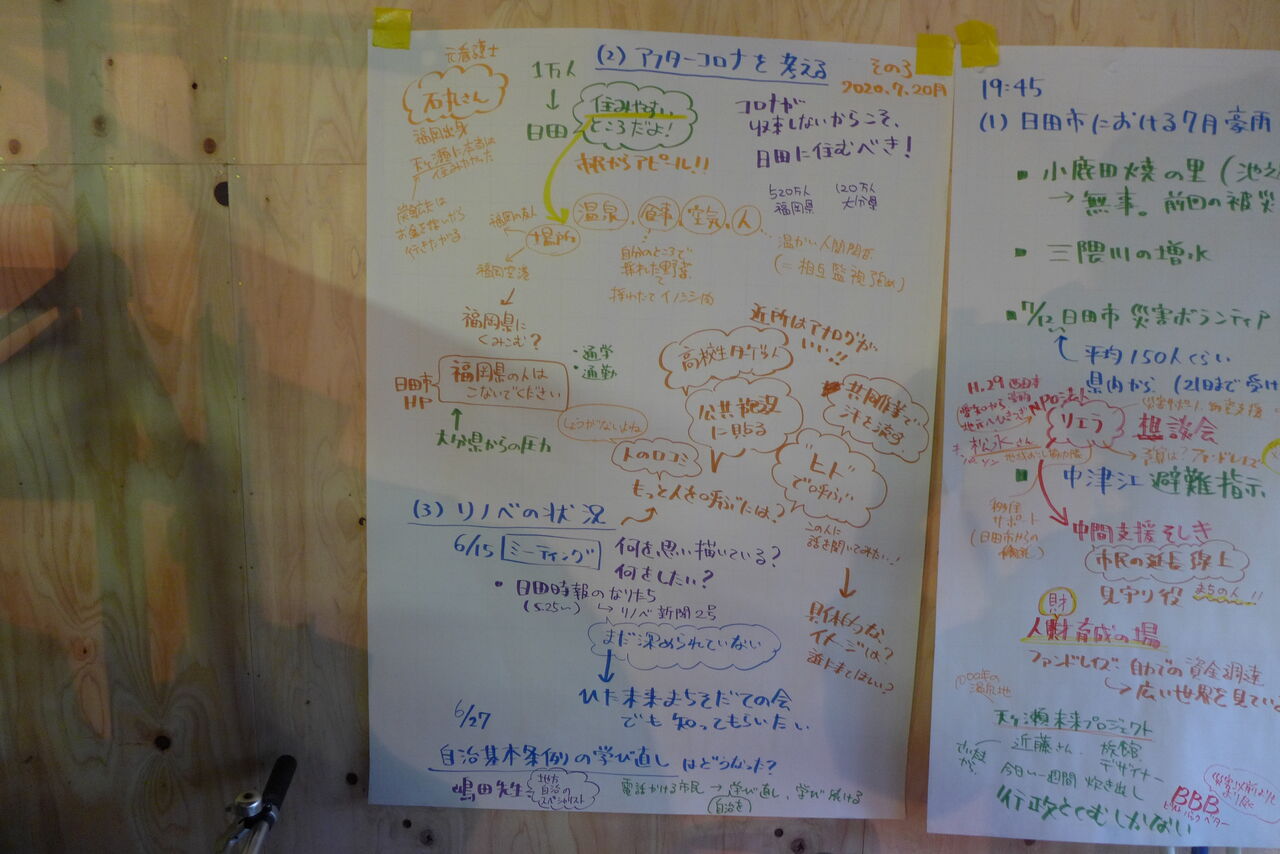 (2) アフターコロナを考える その3
2020.7.20月
元看護士
石丸さん
福岡出身
天ヶ瀬に本当は
住みたかった
1万人
↓
日田
住みやすい
ところだよ!
市民からアピール!!
コロナが
収束しないからこそ、
日田に住むべき!
520万人
福岡県
120万人
大分県
お金を使いながら
行きたがる
福岡の友人
場所
温泉、食事、空気、人
福岡空港
自分のところで
採れた野菜
採れたてイノシシ肉
温かい人間関係
(=相互監視強め)
福岡県に
くみこむ?
・通学
・通勤
日田市
HP
福岡県の人は
こないでください
大分県からの圧力
しょうがないよね
近所はアナログが
いい!!
高校生
公共施設
に貼る
共同作業で
汗を流す
人の口コミ
"ヒト"
で呼ぶ
もっと人を呼ぶには?
この人に
話を聞いてみたい!
具体的な
イメージは?
誰にきてほしい?
(3) リノベの状況
6/15 ミーティング
何を思い描いている?
何をしたい?
・日田時報のなりたち
(5.25い)
→リノベ新聞2号
まだ深められていない
ひた未来まちそだての会
でも知ってもらいたい
6/27
自治基本条例の学び直しはどうなった?
嶋田先生
地方
自治の
スペシャリスト
電話かける市民→学び直し、学び続ける
自治を
19:45
(1) 日田市における7月豪雨
・小鹿田焼の里(池之
→無事。前回の被災
・三隈川の増水
・7/12日田市災害ボランティア
平均150人くらい
県内から (21日まで受け
NPO法人
リエラ
想談会
松永さん
・中津江 避難指示
サポート
(日田市からの
中間支援そしき
市民の延長線上
見守り役 まちの人!!
財
人財育成の場
ファンドレイズ:自力での資金調達
→広い世界を見てい
1000年の
温泉地
天ヶ瀬未来プロジェクト
近藤さん、旅館
デザイナー
今日〜一週間 炊き出し
行政とくむしかない
災害以前よりも
より良く
BBB
ビルドバックベター